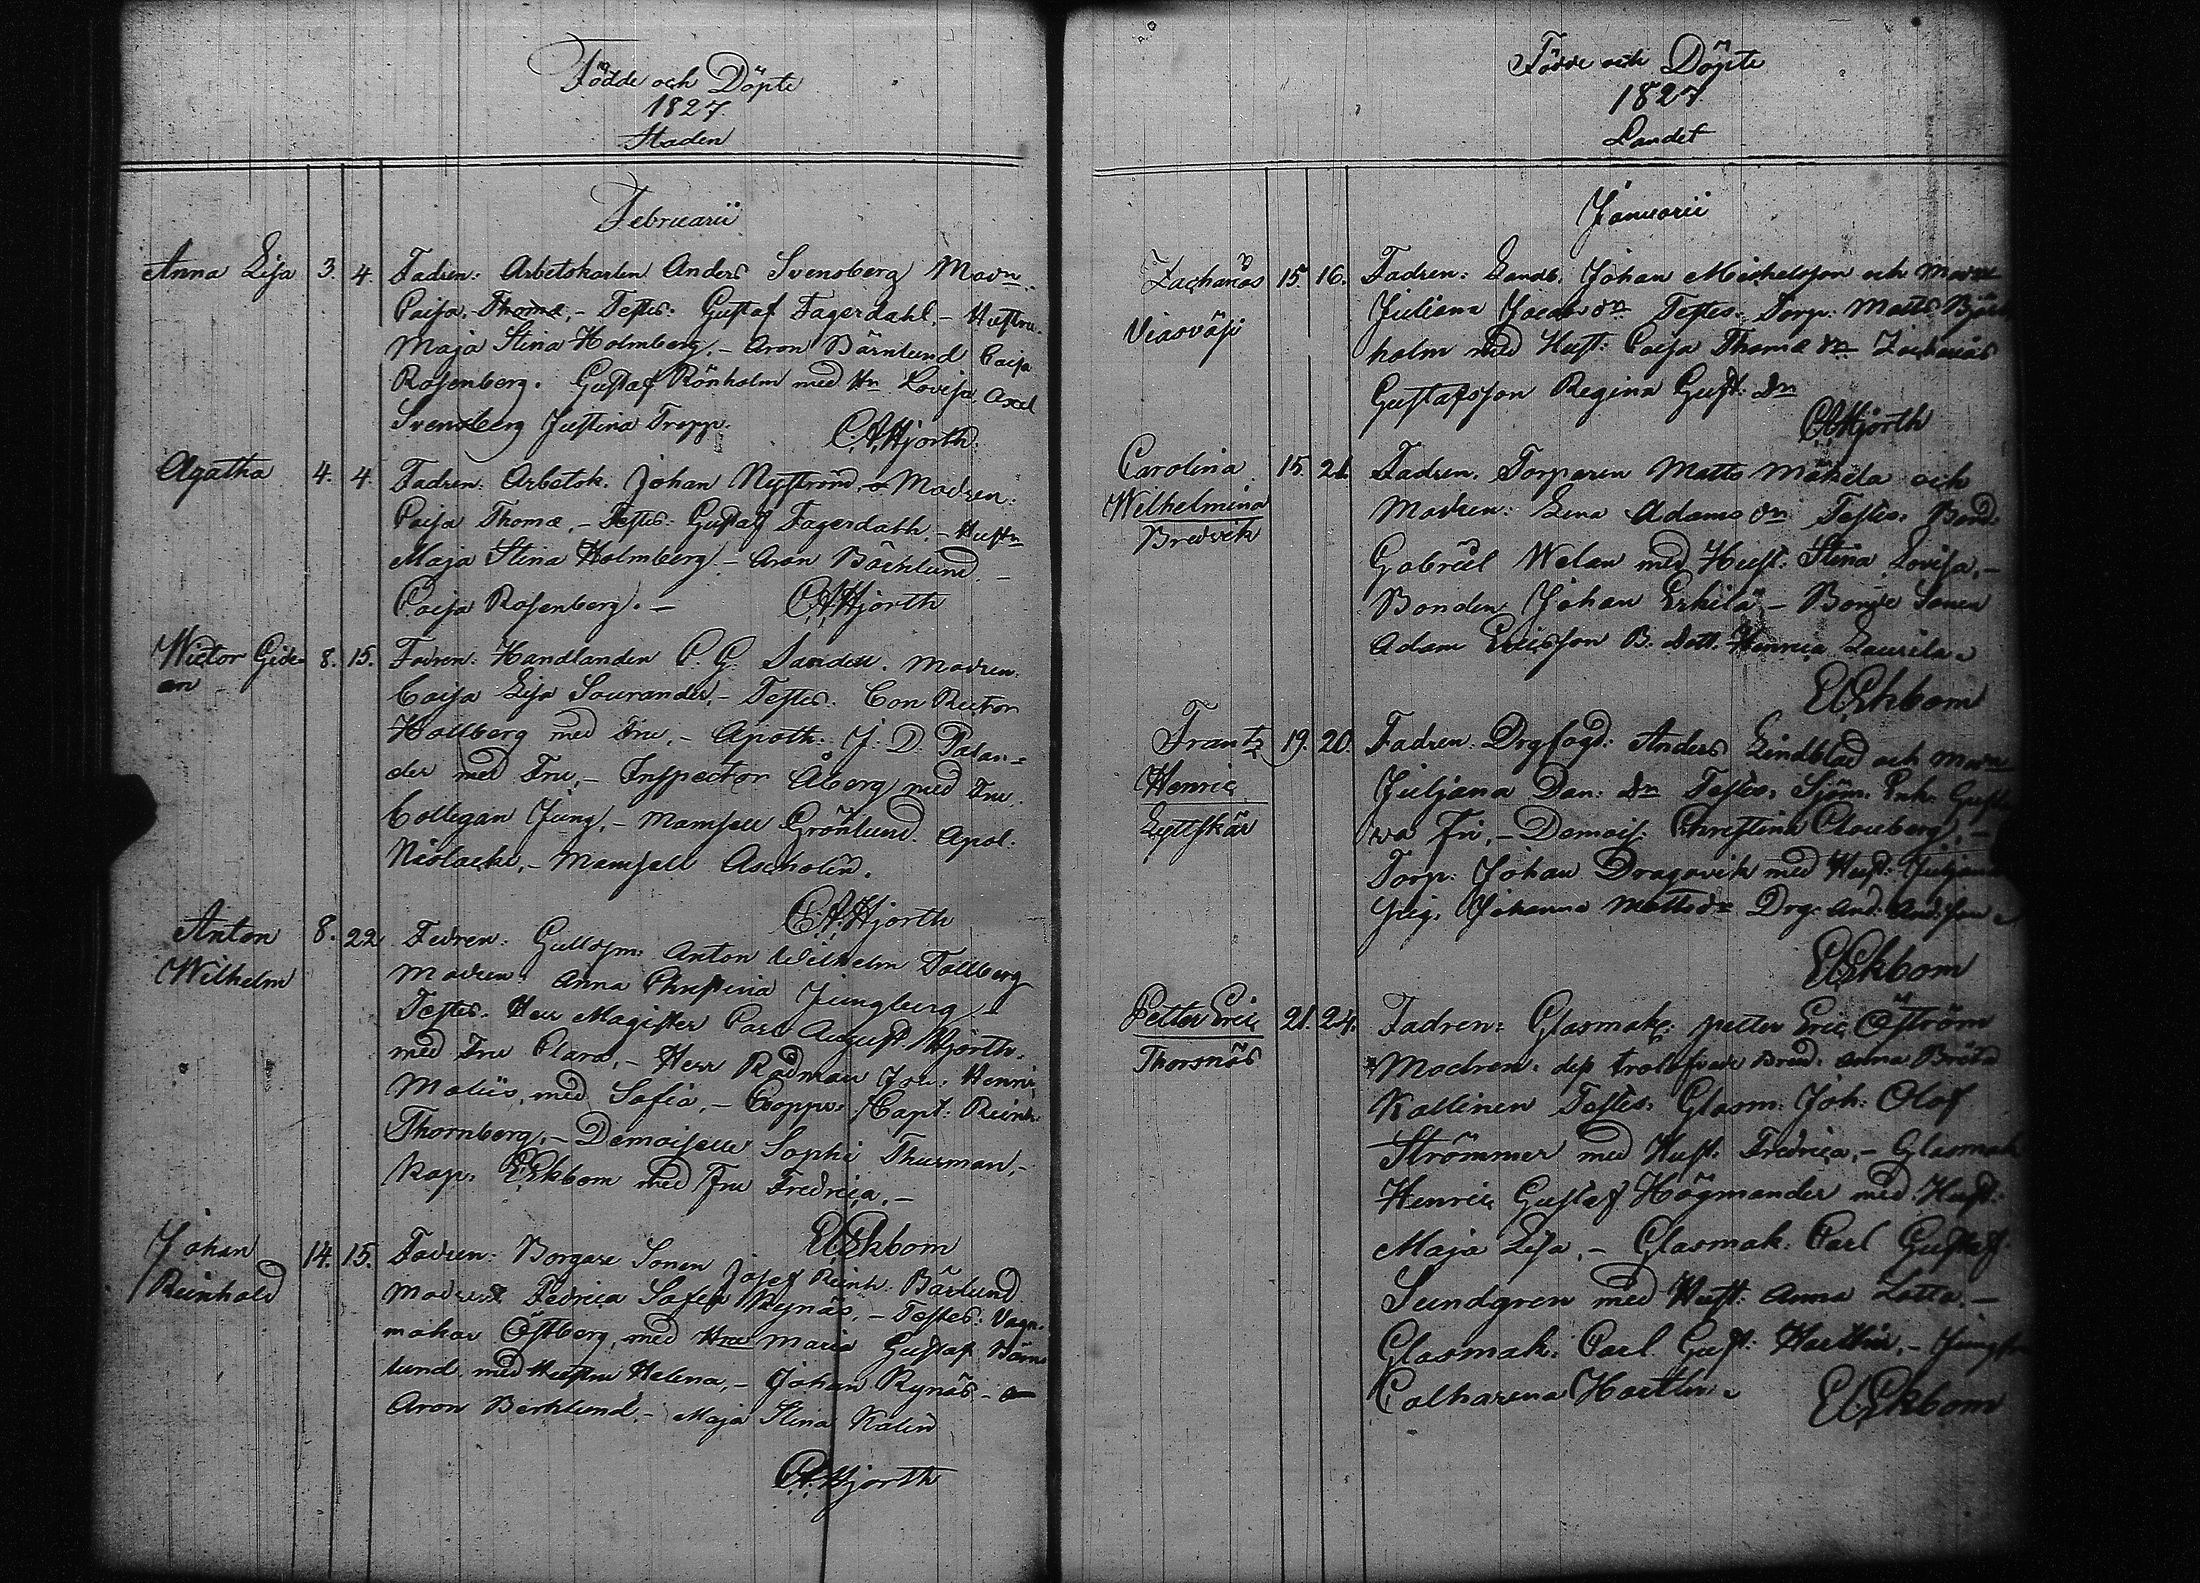 Födde och Döpte
1827.
Staden
Februarii
Anna Lisa 3. 4. Fadren: Arbetskarlen Anders Svensberg Modn.
Caisa Thomæ, - Testes: Gustaf Fagerdahl, - Hustru
Maja Stina Holmberg, - Aron Bärnlund Caisa
Rosenberg. Gustaf Rönholm med Hn Lovisa, Axel
Svensberg Justina Tropp.
C.A.Hjorth.
Agatha 4. 4. Fadren: Arbetsk. Johan Nyström, o Modren:
Caisa Thomæ, - Testes: Gustaf Fagerdahl, - Hustn
Maja Stina Holmberg, - Aron Bäcklund, -
Caisa Rosenberg. - C.A.Hjorth
Wictor Gide- 8. 15. Fadren: Handlanden C. G. Sandell. Modren.
on Caisa Lisa Sourander, - Testes. Con Rector
Hallberg med Fru, - Apoth: J: D. Palan-
der med Fru, - Inspector Åberg med Fru.
Collegan Jung, - Mamsell Grönlund. Apol.
- Mamsell Ascholin.
C.A.Hjorth
Anton 8. 22 Fadren: Gulldsm: Anton Wilhelm Tallberg
Wilhelm Modren: Anna Christina Jungberg -
Testes. Herr Magister Carl August Hjorth.
med Fru Clara, - Herr Rådman Joh: Henric
med Sofia, - Coopv: Capt: Reinh.
Thornberg, - Demoiselle Sophi Thurman, -
Kap. E.Ekbom med Fru Fredrica, -
E.Ekbom
Johan 14. 15. Fadren: Borgare Sonen Josef Reinh. Bärlund
Reinhold Modren Fedrica Sofia Rynäs, - Testes: Vagn-
makar Östberg, med Hru Maria Gustaf Bärn
lund med Hustru Helena, - Johan Rynäs -
Aron Berklund, - Maja Stina Kalin
C.A.Hjorth
Födde och Döpte
1827
Landet
Januarii
Zacharias 15. 16. Fadren: Landb. Johan Michelsson och Modn
Viasväsi Juliana Jacobs dn Testes. Torp. Matts Björk
holm med Hust: Caisa Thomæ dn Zacharias
Gustafsson Regina Gust: dn
C.A.Hjorth
Carolina 15. 21. Fadren. Torparen Matts Mäkelä och
Wilhelmina Modren: Lena Adams dn Testes. Bond.
Bredvik Gabriel Welan med Hust: Stina Lovisa, -
Bonden Johan Erkilä - Bonde Sonen
Adam Ericsson B. dott. Henrica Laurila.
E.Ekbom
Frantz 19. 20. Fadren: Drgfogd: Anders Lindblad och Modn
Henric Juljana Dan: dn Testes. Sjöm. Enk: Gusta
Lyttskär va Fri, - Demois: Christina Clouberg, -
Torp: Johan Dragsvik med Hust: Juljana
Pig. Johanna Matts dr Drg: And: And:sson
E.Ekbom
Petter Eric 21. 24. Fadren: Glasmak: petter Eric Öström
Thorsnäs Modren: dess trolofvade Brud. Anna Brita
Kallinen Testes: Glasm: Joh: Olof
Strömmer med Hust. Fredrica, - Glasmak
Henric Gustaf Högmander med Hust:
Maja Lisa, - Glasmak: Carl Gustaf
Sundgren med Hust: Anna Lotta. -
Glasmak: Carl Gust: Haertlin, - Jungfru
Catharina Haertlin
E.Ekbom